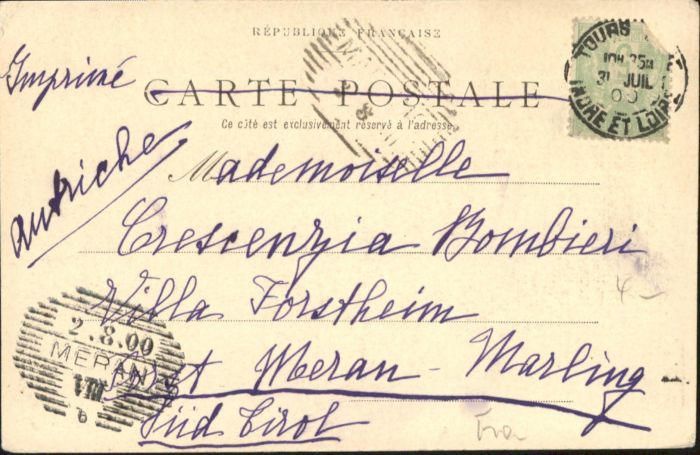 RÉPUBLIQUE FRANÇAISE
Imprimé
CARTE POSTALE
Ce côté est exclusivement réservé à l'adresse
TOURS
10H 35M
31 JUIL
00
INDRE ET LOIRE
Autriche
Mademoiselle
Crescenzia Bombieri
Villa Forstheim
Post Meran - Marling
Süd Tirol
2.8.00
MERAN
VIII
b